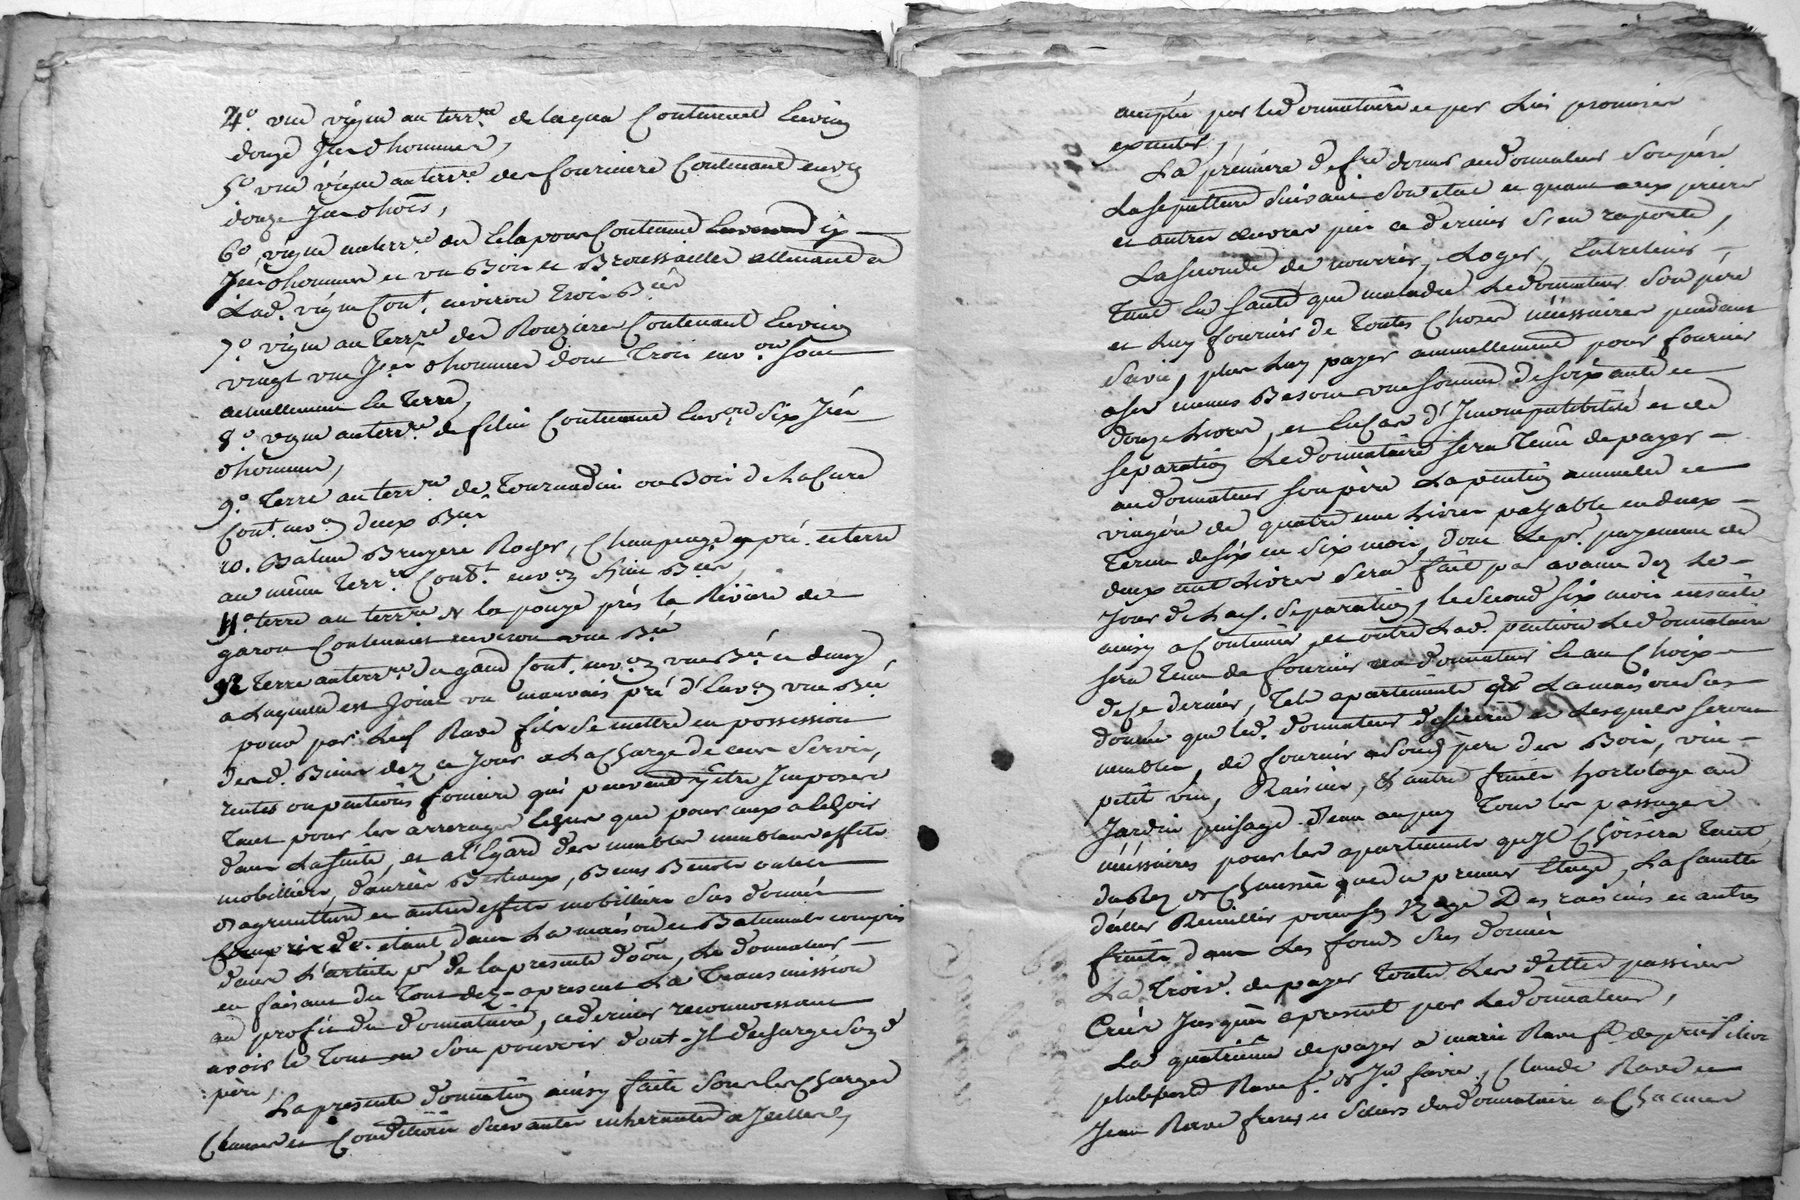 4.° une vigne au terr.re de laqua Contenant Environ
douze J.ées d'hommes,
5.° une vigne au terr.re des fourniere Contenant env.on
douze J.ées d'hoes,
6.° vigne au terr.re du Contenant six
J.ées d'hommes et un Bois et Broussailles attenant a
Lad. vigne Cont. environ trois B.ées
7.° vigne au Terr.re des Rouziere Contenant Environ
vingt une J.ées d'hommes dont Trois env.on sont
actuellement En Terre,
8.° vigne au terr.re de felin Contenant Env.on Six J.ées
d'hommes,
9.° Terre au terr.re de Tournadin ou Bois de La Cure
Cont. env.on deux B.ées
10. Balme Bruyere Rocher, Champeage pré et terre
au même Terr.re Cont.t env.on huit B.ées,
11.° terre au terr.re de la pouze près la Rivière de
garon Contenant environ une B.ée
12 Terre au terr.re du gand Cont. env.on une B.ée et demy
a Laquelle est Joint un mauvais pré d'Env.on une B.ée
pour par Led. Rave fils se mettre en possession
desd. Biens dez ce Jour a La Charge de leur Servis,
rentes ou pentions fonciere qui peuvent y être Imposés
Tant pour les arrerages Echus que pour ceux a Echoir
dans La suite, et a l'Egard des meubles meublans effets
mobilliers, danrées Bestiaux, Bennes outils
d'agriculture et autres effets mobilliers Sus donnés
étant dans La maison et Batiments compris
dans L'article p.er de la presente d.on, Le donnateur
en faisant du Tout dez-apresent La Transmission
au profit du donnataire, ce dernier reconnoissant
avoir le Tout en Son pouvoir dont Il decharge Sond.
père,
La presente donnation ainsy faite Sous les Charges
Clauses et Conditions Suivantes inherentes a Icelle,
acceptée par le donnataire et par Lui promises
executer,
La premiere de fre donner au donnateur Son père
La sepulture Suivant Son etat et quant aux prieres
et autres œuvres pies ce dernier S'en raporte,
La seconde de nourrir, Loger, Entretenir
Tant En Santé que maladie Le donnateur Son père
et Luy fournir de Toutes Choses nécessaires pendant
Sa vie, plus Luy payer annuellement pour fournir
a ses menus Besoins une somme de soixante et
douze Livres, et En Cas d'Incompatibilité et de
separation Le donnataire sera Tenu de payer
au donnateur son père La pention annuelle et
viagère de quatre cent Livres payable en deux
Terme de six en six mois, dont Le p.r payement de
deux cent Livres sera fait par avance dez Le
Jour de Lad. Separation, le second six mois ensuite
ainsy a Continuer, et outre Lad. pention Le donnataire
sera Tenu de fournir au donnateur Et au Choix
de ce dernier, Tels apartements de La maison Sus
donnée que led. donnateur desirera et Lesquels seront
meublés, de fournir a Sond. père des Bois, vin
petit vin, Raisins, & autre fruits hortolage au
Jardin puisage d'eau au puy Tous les passages
nécessaires pour les apartements qu'Il Choisira tant
du Rez de Chaussée que du premier Etage, La faculté
d'aller Cueillir pour son usage Des raisins et autres
fruits dans Les fonds Sus donnés
La Trois.e de payer Toutes Les dettes passives
Créés Jusques apresent par Le donnateur,
La quatrième de payer a marie Rave f.e de
Rave f.e de J.n favre, Claude Rave et
Jean Rave freres et Sœurs du donnataire a Chacune